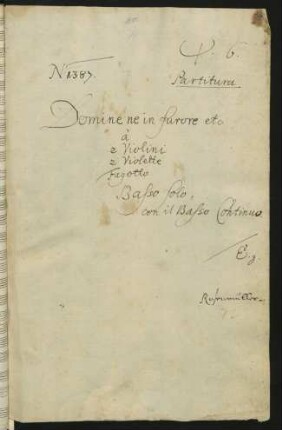 6.
N 1387.
Partitura
Domine ne in furore etc
à
2 Violini
2 Violette
Fagotto
Basso solo,
con il Basso Continuo